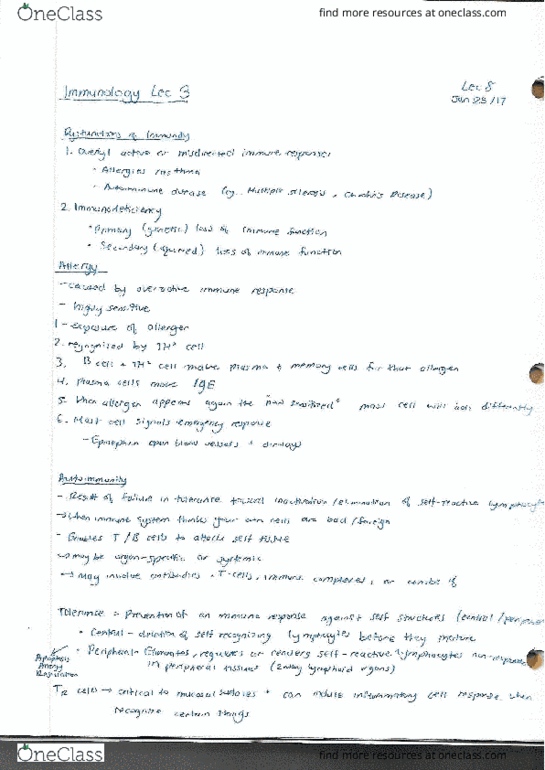 OneClass
find more resources at oneclass.com
Immunology Lec 3
Lec 8
Jun 23/17
Dysfunctions of Immunity
1. Overly active or misdirected immune responses
• Allergies / asthma
• Autoimmune disease (eg. Multiple Sclerosis, Crohn's Disease)
2. Immunodeficiency
• Primary (genetic) loss of immune function
• Secondary (aquired) loss of immune function
Allergy
- Caused by overactive immune response
- highly sensitive
1 - exposure of allergen
2. recognized by TH² cell
3. B cell + TH² cell make plasma + memory cells for that allergen
4. Plasma cells make IgE
5. When allergen appears again the "sensitized" mast cell will act differently
6. Mast cell signals emergency response
- Epinephrin open blood vessels +
Autoimmunity
- Result of failure in tolerance toward inactivation / elimination of self-reactive lymphocytes
→ When immune system thinks your own cells are bad / foreign
- Enables T/B cells to attack self tissue
→ may be organ-specific or systemic
→ May involve antibodies, T-cells, immun. complexes, or combo of
Tolerance = Prevention of an immune response against self structures (central / peripheral
• Central - deletion of self recognizing lymphocytes before they mature
• Peripheral - Eliminates, regulates or renders self-reactive lymphocytes non-responsive
in peripheral tissues (2ndary lymphoid organs)
Apoptosis
Anergy
Regulation
TR cells → critical to mucosal surfaces + can indute inflammatory cell response when
recognize certain things
OneClass
find more resources at oneclass.com